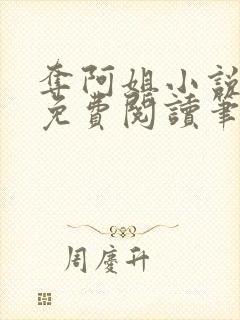 奪阿姐小說
免費閱讀筆
周慶升